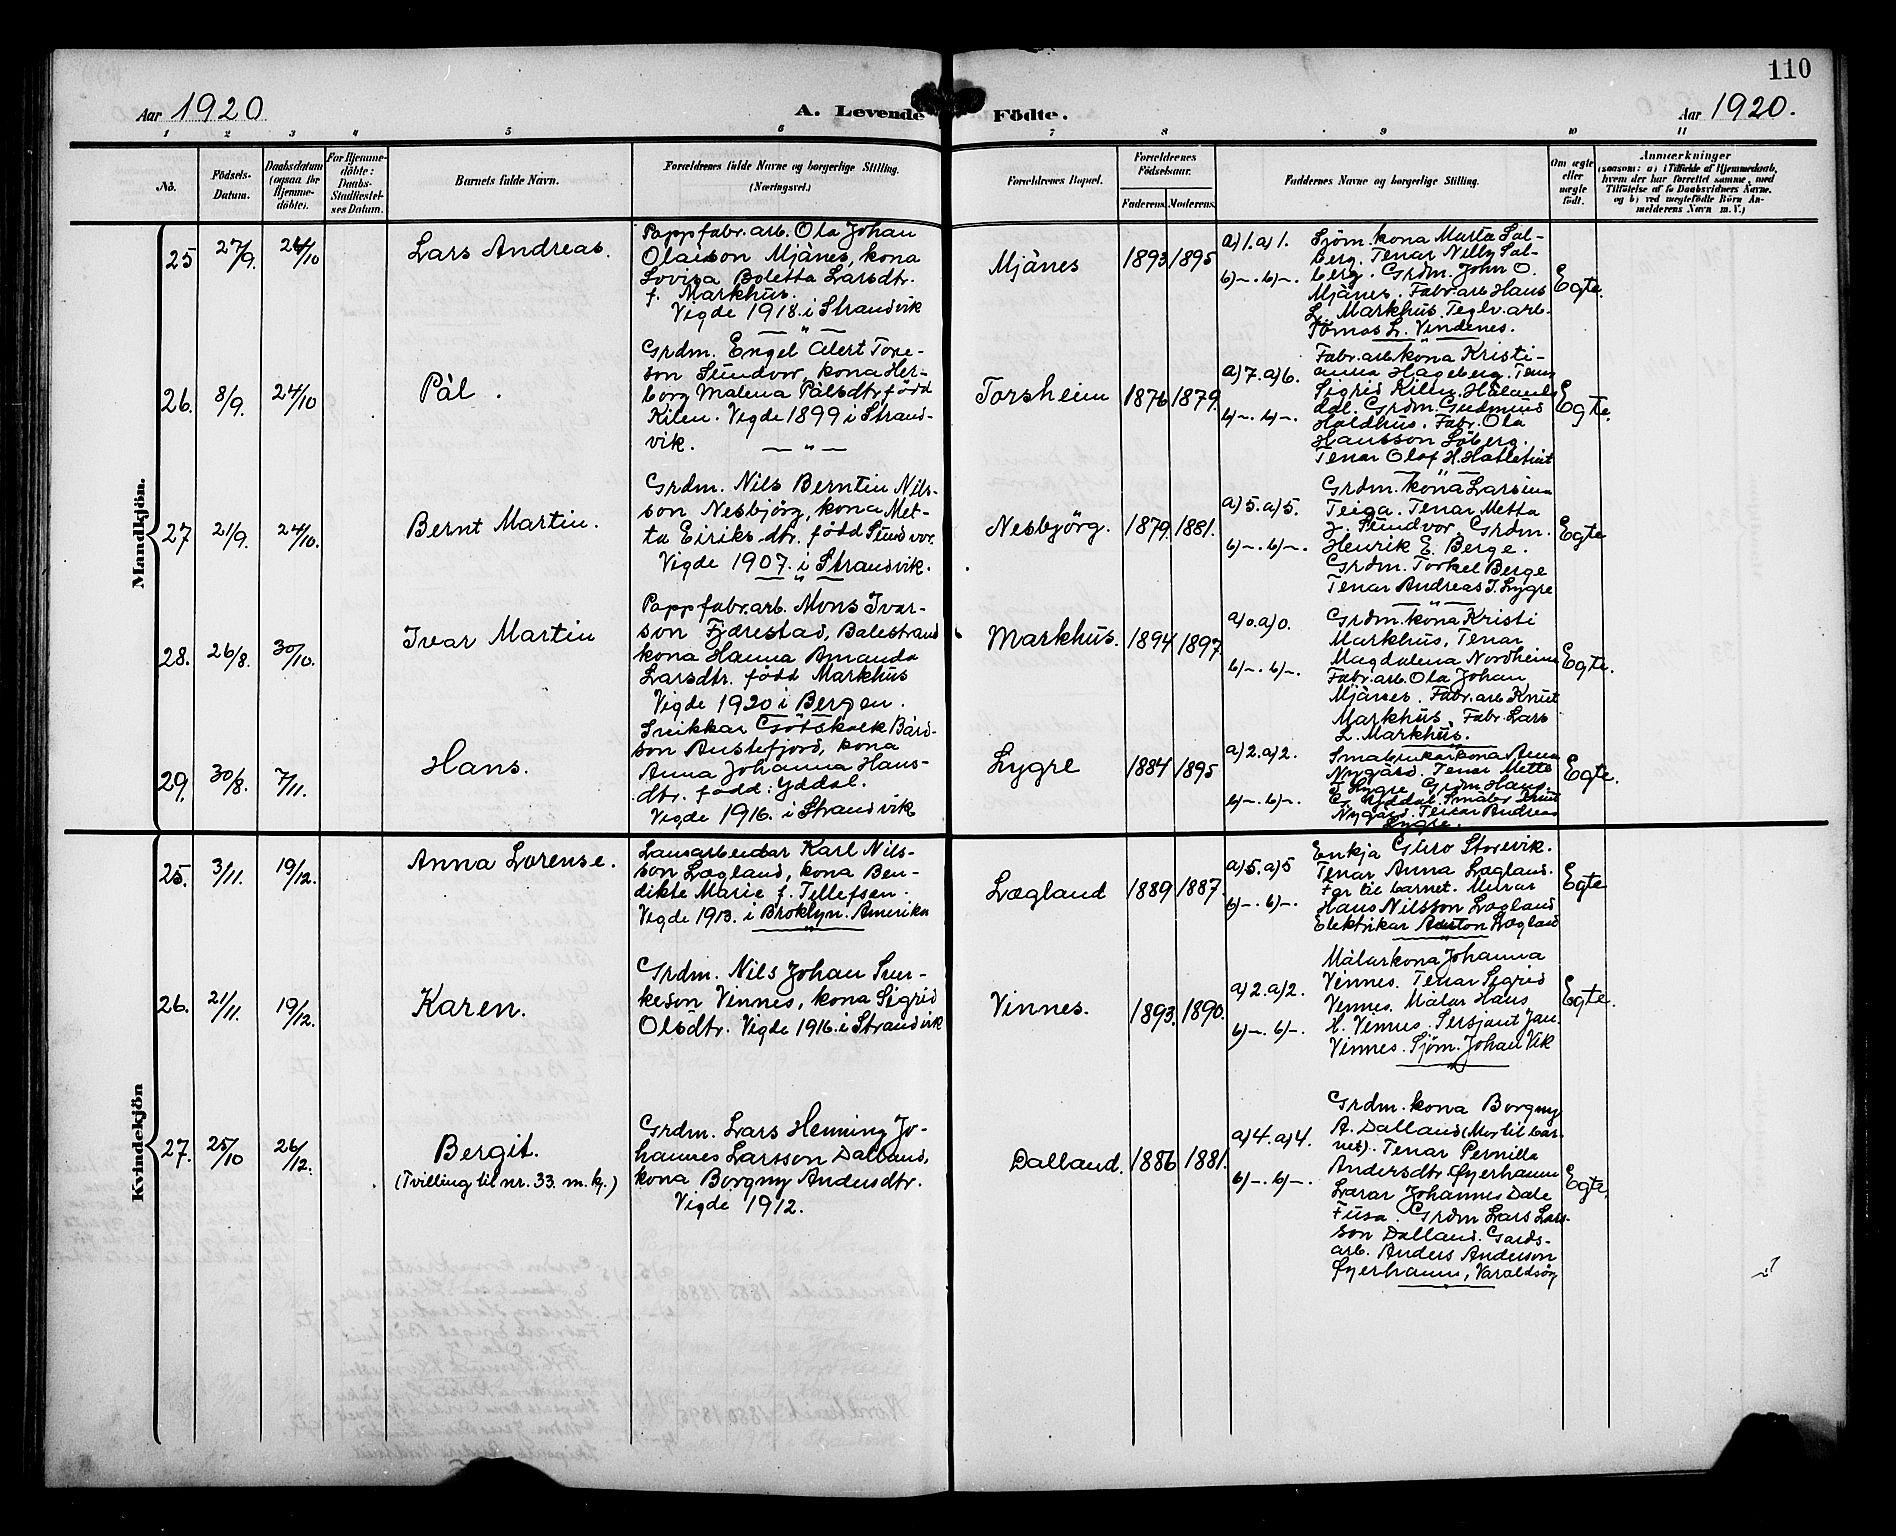 110
Aar 1920
A. Levende Födte.
Aar 1920.
1 2 3 4 5 6 7 8 9 10 11
No.
Födsels-Datum.
Daabsdatum (ogsaa for Hjemmedöbte).
For Hjemmedöbte: Daabs-Stadfestelses Datum.
Barnets fulde Navn.
Forældrenes fulde Navne og borgerlige Stilling.
(Næringsvei.)
Forældrenes Bopæl.
Forældrenes Fødselsaar.
Faderens. Moderens.
Faddernes Navne og borgerlige Stilling.
Om ægte eller uægte födt.
Anmærkninger
(saasom: a) i Tilfælde af Hjemmedaab,
hvem der har forrettet samme, med
Tilföielse af to Daabsvidners Navne.
og b) ved uægtefödte Börn An-
melderens Navn m. V.)
Mandkjön.
25 27/9. 24/10 Lars Andreas.
Pappfabr.arb. Ola Johan
Olaisson Mjånes, kona
Lovisa Boletta Larsdtr.
f. Markhus.
Vigde 1918. i Strandvik
Mjånes 1893 1895
a) 1. a) 1.
b) –. b) –.
Sjöm. kona Marta Sol-
berg. Tenar Nelly Sol-
berg. Grdm. John O.
Mjånes. Fabr.arb Hans
L. Markhus. Teglv.arb.
Tomas L. Vindenes.
Egte.
26. 8/9. 24/10 Pål.
Grdm. Engel Alert Tore-
son Sundvor, kona Her-
borg Malena Pålsdtr född
Kilen. Vigde 1899 i Strand-
vik.
Torsheim 1876 1879.
a) 7. a) 6.
b) –. b) –.
Fabr.arb.kona Kristi-
anna Hageberg. Tenar
Sigrid Kilen, Hålands
dal. Grdm. Gudmund
Holdhus. Fabr. Ola
Hansson Söberg.
Tenar Olaf H. Hatletveit
Egte.
27 21/9. 24/10. Bernt Martin.
Grdm. Nils Berntin Nils-
son Nesbjörg, kona Met-
ta Eiriksdtr. född Sundvor.
Vigde 1907. i Strandvik.
Nesbjörg. 1879. 1881.
a) 5. a) 5.
b) –. b) –.
Grdm. kona Larsina
Teiga. Tenar Metta
J. Sundvor. Grdm.
Henrik E. Berge.
Grdm. Torkel Berge
Tenar Andreas T. Lygre
Egte
28. 26/8. 30/10. Ivar Martin
Pappfabr.arb. Mons Ivar-
son Fjærestad, Balestrand
kona Hanna Amanda
Larsdtr. född Markhus
Vigde 1920 i Bergen.
Markhus. 1894 1897.
a) 0. a) 0.
b) –. b) –.
Grdm. kona Kristi
Markhus, Tenar
Magdalena Nordheim
Fabr. arb. Ola Johan
Mjånes. Fabr. arb Knut
Markhus. Fabr. Lars
L. Markhus.
Egte.
29. 30/8. 7/11. Hans.
Snikkar Götskalk Bård-
son Austefjord, kona
Anna Johanna Hans-
dtr. född: Yddal.
Vigde 1916. i Strandvik
Lygre 1884 1895
a) 2. a) 2.
b) –. b) –.
Småbrukarkona Anna
Nygård. Tenar Metta
Lygre. Grdm Hans
Yddal. Småbr.
Nygård. Tenar Andreas
Lygre.
Egte.
Kvindekjön
25. 3/11. 19/12. Anna Lorense.
Lausarbeidar Karl Nils-
son Lægland, kona Ben-
dikte Marie f. Tellefsen.
Vigde 1913. i Broklyn. Amerika
Lægland 1889 1887.
a) 5. a) 5
b) –. b) –.
Enkja Guro Storevik.
Tenar Anna Lægland.
Far til barnet. Murar
Hans Nilsson Lægland
Elektrikar Anton Lægland
Egte
26. 21/11. 19/12. Karen.
Grdm. Nils Johan Sven-
keson Vinnes, kona Sigrid
Olsdtr. Vigde 1916. i Strandvik
Vinnes. 1893. 1890.
a) 2. a) 2.
b) –. b) –.
Målarkona Johanna
Vinnes. Tenar Sigrid
Vinnes. Målar Hans
H. Vinnes. Sersjant Jan
Vinnes. Sjöm. Johan Vik
Egte.
27. 25/10 26/12. Bergit.
(Tvilling til nr. 33. m. kj.)
Grdm. Lars Henning Jo-
hannes Larsson Dalland,
kona Borgny Andersdtr.
Vigde 1912.
Dalland. 1886 1881.
a) 4. a) 4.
b) –. b) –.
Grdm. kona Borgny
A. Dalland (Mor til bar-
net). Tenar Pernilla
Andersdtr Öyerhamn
Lærar Johannes Dale
Fusa. Grdm Lars Lars-
son Dalland. Gards-
arb. Anders Anderson
Öyerhamn, Varaldsöy
Egte.